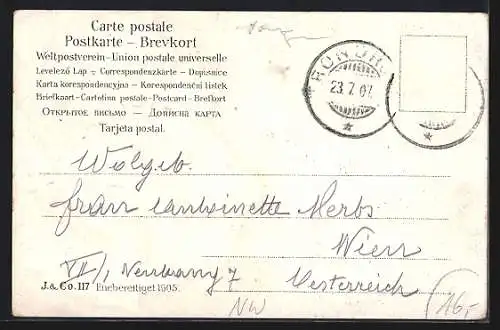 Carte postale
Postkarte – Brevkort
Weltpostverein – Union postale universelle
Levelező Lap – Correspondenzkarte – Dopisnice
Karta korespondencyjna – Korespondenční lístek
Briefkaart – Cartolina postale – Postcard – Brefkort
Открытое письмо – Дописна карта
Tarjeta postal.
23.7.07
Wolgeb.
frau Antoinette Herbs
Wien
VII/, Neubaug 7 Oesterreich
J. & Co. 117 1905.
NW
16,-